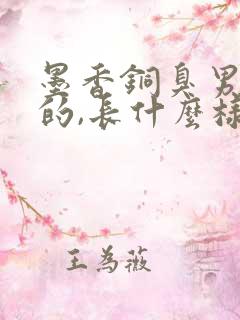 墨香銅臭男
的,長什麼樣
王為薇